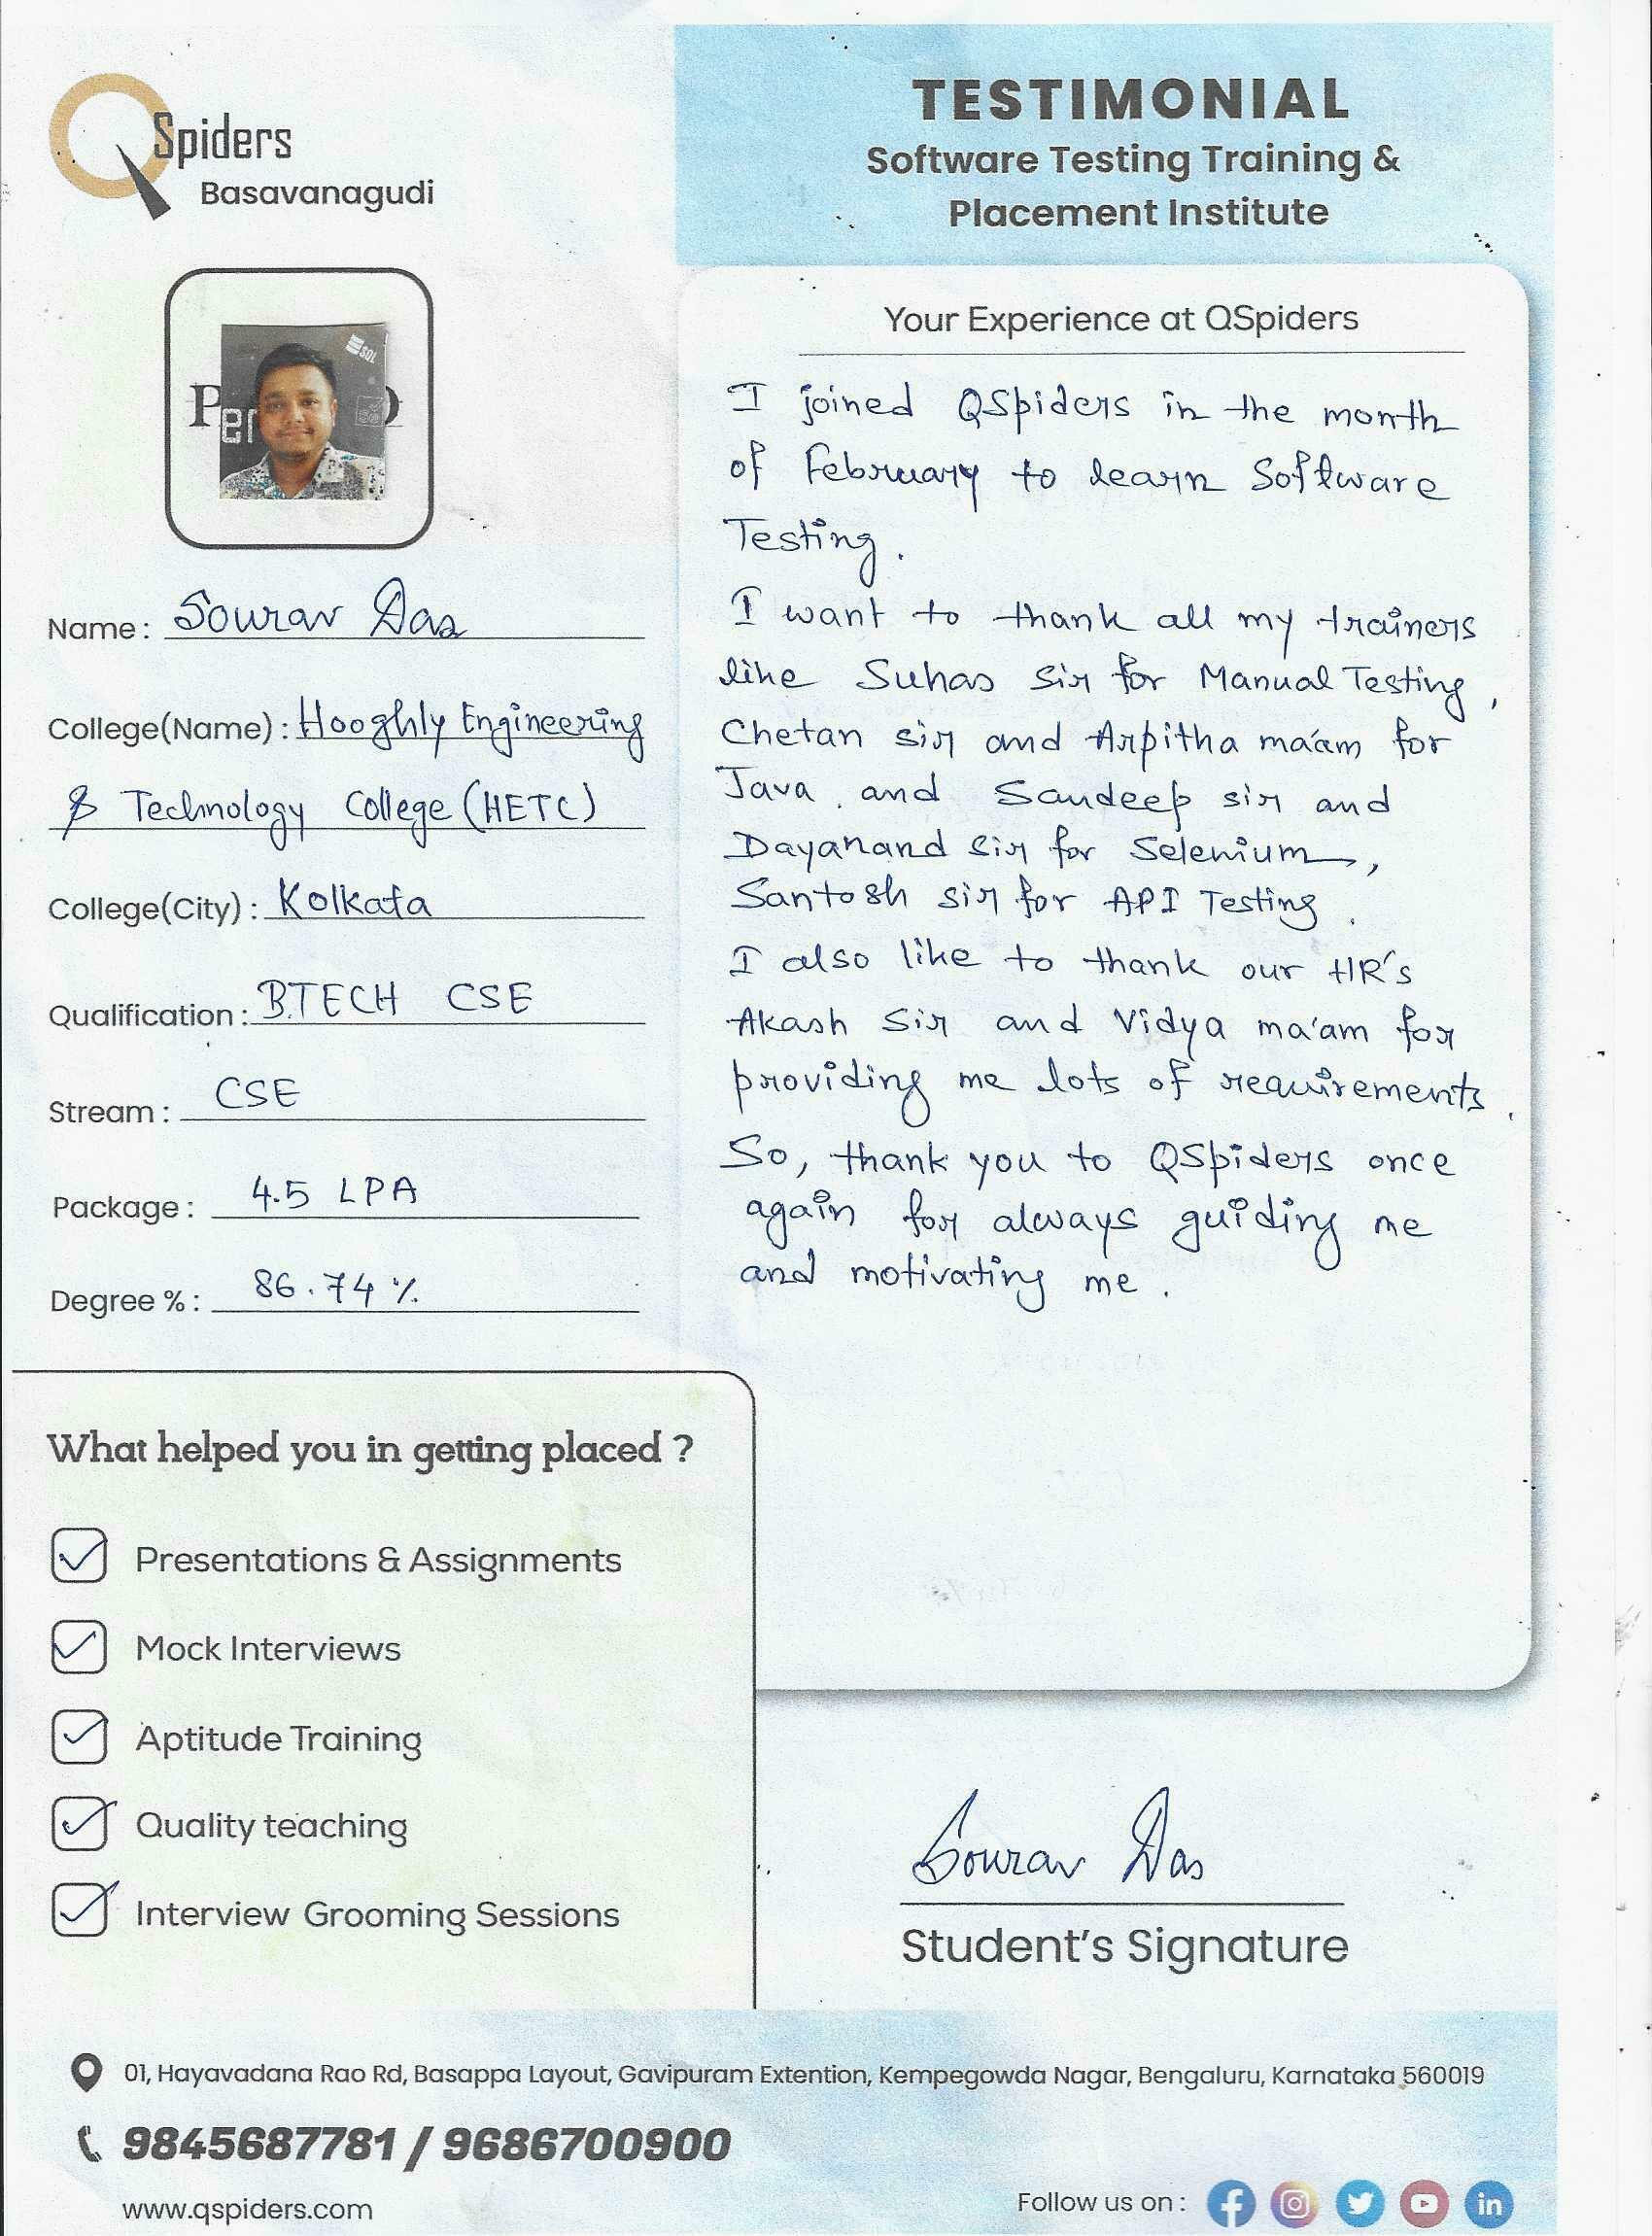 QSpiders
Basavanagudi
TESTIMONIAL
Software Testing Training &
Placement Institute
SQL
P
er
Name : Sourav Das
College(Name) : Hooghly Engineering
& Technology College (HETC)
College(City) : Kolkata
Qualification : B.TECH CSE
Stream : CSE
Package : 4.5 LPA
Degree % : 86.74 %
Your Experience at QSpiders
I joined QSpiders in the month
of February to learn Software
Testing.
I want to thank all my trainers
like Suhas sir for Manual Testing,
Chetan sir and Arpitha ma'am for
Java, and Sandeep sir and
Dayanand sir for Selenium,
Santosh sir for API Testing.
I also like to thank our HR's
Akash Sir and Vidya ma'am for
providing me lots of requirements.
So, thank you to QSpiders once
again for always guiding me
and motivating me.
What helped you in getting placed ?
Presentations & Assignments
Mock Interviews
Aptitude Training
Quality teaching
Interview Grooming Sessions
Sourav Das
Student's Signature
01, Hayavadana Rao Rd, Basappa Layout, Gavipuram Extention, Kempegowda Nagar, Bengaluru, Karnataka 560019
9845687781 / 9686700900
www.qspiders.com
Follow us on :